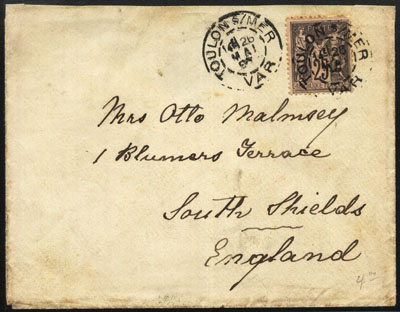 TOULON S/MER
26
MAI
VAR
TOULON S/MER
25
VAR
Mrs Otto Malmsey
1 Blumers Terrace
South Shields
England